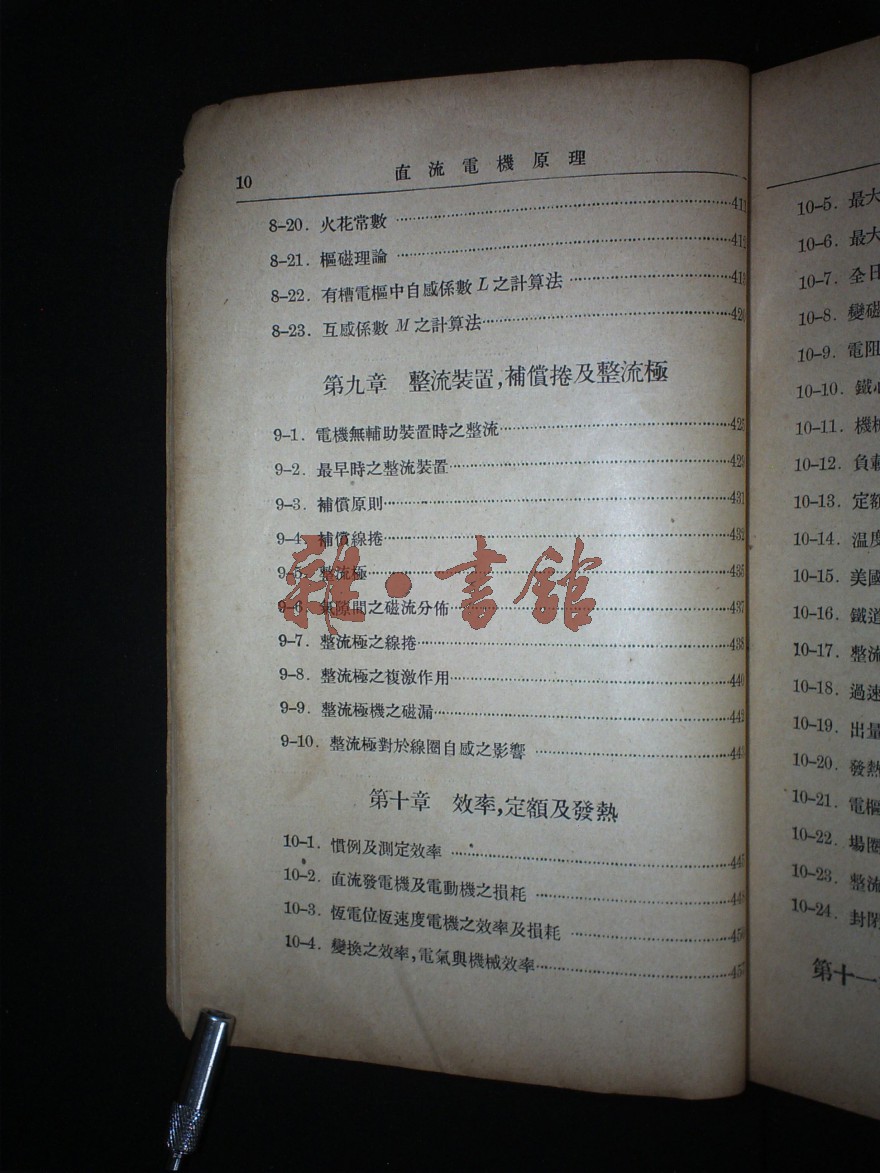 10 直流電機原理
8-20. 火花常數 411
8-21. 樞磁理論 412
8-22. 有槽電樞中自感係數 L 之計算法 413
8-23. 互感係數 M 之計算法 420
第九章 整流裝置,補償捲及整流極
9-1. 電機無輔助裝置時之整流 425
9-2. 最早時之整流裝置 429
9-3. 補償原則 431
9-4. 補償線捲 432
9-5. 整流極 435
9-6. 氣隙間之磁流分佈 437
9-7. 整流極之線捲 438
9-8. 整流極之複激作用 440
9-9. 整流極機之磁漏 442
9-10. 整流極對於線圈自感之影響
第十章 效率,定額及發熱
10-1. 慣例及測定效率 445
10-2. 直流發電機及電動機之損耗 448
10-3. 恆電位恆速度電機之效率及損耗 456
10-4. 變換之效率,電氣與機械效率 457
雜·書館
10-5. 最大
10-6. 最大
10-7. 全日
10-8. 變磁
10-9. 電阻
10-10. 鐵心
10-11. 機械
10-12. 負載
10-13. 定額
10-14. 溫度
10-15. 美國
10-16. 鐵道
10-17. 整流
10-18. 過速
10-19. 出量
10-20. 發熱
10-21. 電樞
10-22. 場圈
10-23. 整流
10-24. 封閉
第十一